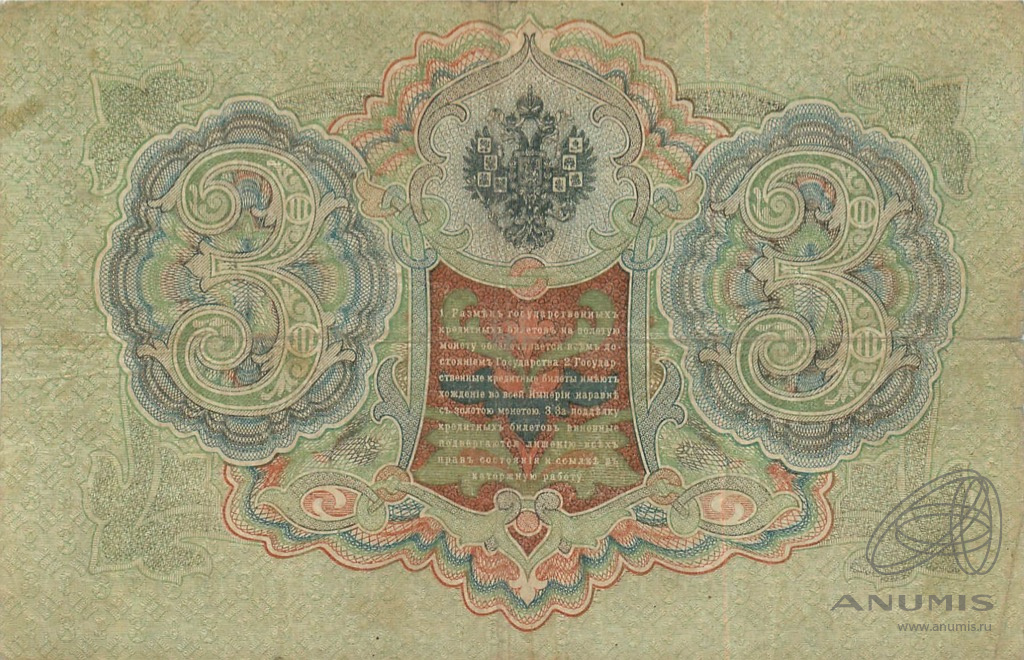 3 3
1. Размѣнъ государственныхъ
кредитныхъ билетовъ на золотую
монету обезпечивается всѣмъ до-
стояніемъ Государства. 2. Государ-
ственные кредитные билеты имѣютъ
хожденіе во всей Имперіи наравнѣ
съ золотою монетою. 3. За поддѣлку
кредитныхъ билетовъ виновные
подвергаются лишенію всѣхъ
правъ состоянія и ссылкѣ въ
каторжную работу
ANUMIS
www.anumis.ru